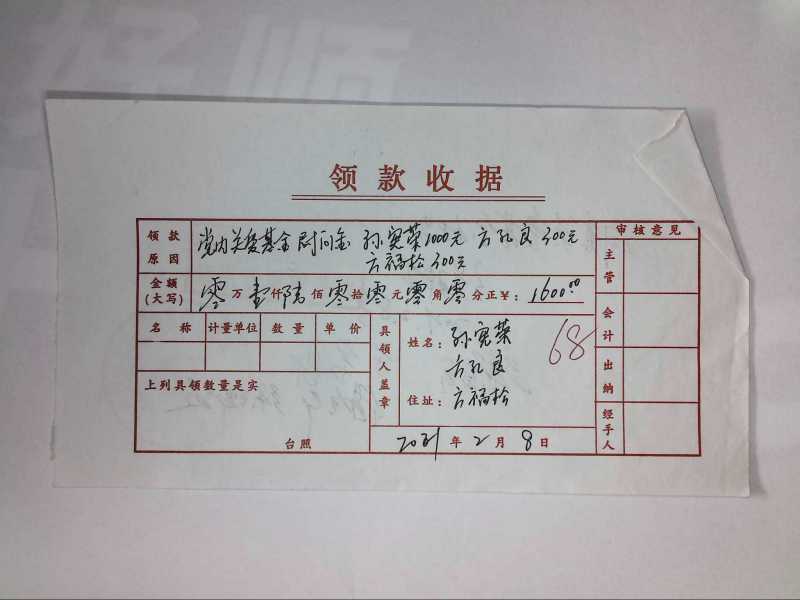 领款收据
领款原因 党内关爱基金慰问金 孙宽荣1000元 方孔良300元
方福松300元
审核意见
金额(大写) 零万壹仟陆佰零拾零元零角零分正¥:1600.00
主管
名称 计量单位 数量 单价
具领人盖章
姓名:孙宽荣
方孔良
住址:方福松
68
会计
上列具领数量是实
出纳
台照
2021年2月8日
经手人